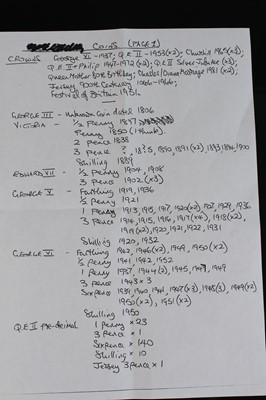 Coins (PAGE 1)
CROWNS George VI - 1937; Q.E II - 1953 (x2); Churchill 1965 (x3);
Q.E II + Philip 1947-1972 (x2); Q.E II Silver Jubilee (x3);
Queen Mother 80th Birthday; Charles/Diana Marriage 1981 (x2);
Jersey 900th Centenary 1066-1966;
Festival of Britain 1951.
GEORGE III - Unknown Coin dated 1806
VICTORIA - 1/2 Penny 1857
Penny 1850 (I think)
2 pence 1838
3 pence ?, 18?5, 1890, 1891 (x2), 1893, 1894, 1900
Shilling 1889
EDWARD VII - 1/2 Penny 1904, 1908
3 pence 1902 (x3)
GEORGE V - Farthing 1919, 1936
1/2 penny 1921
1 penny 1913, 1915, 1917, 1920 (x2), 1927, 1929, 1936
3 pence 1914, 1915, 1916, 1917 (x4), 1918 (x2),
1919 (x2), 1920, 1921, 1922, 1931
Shilling 1920, 1932
GEORGE VI - Farthing 1942, 1946 (x2), 1949, 1950 (x2)
1/2 penny 1941, 1942, 1952
1 penny 1937, 1944 (2), 1945, 1949
3 pence 1943 x 3
Sixpence 1939, 1940, 1941, 1947 (x3), 1948 (3), 1949 (x2)
1950 (x2), 1951 (x2)
Shilling 1950
Q.E II Pre-decimal 1 Penny x 23
3 Pence x 1
Sixpence x 140
Shilling x 10
Jersey 3 pence x 1